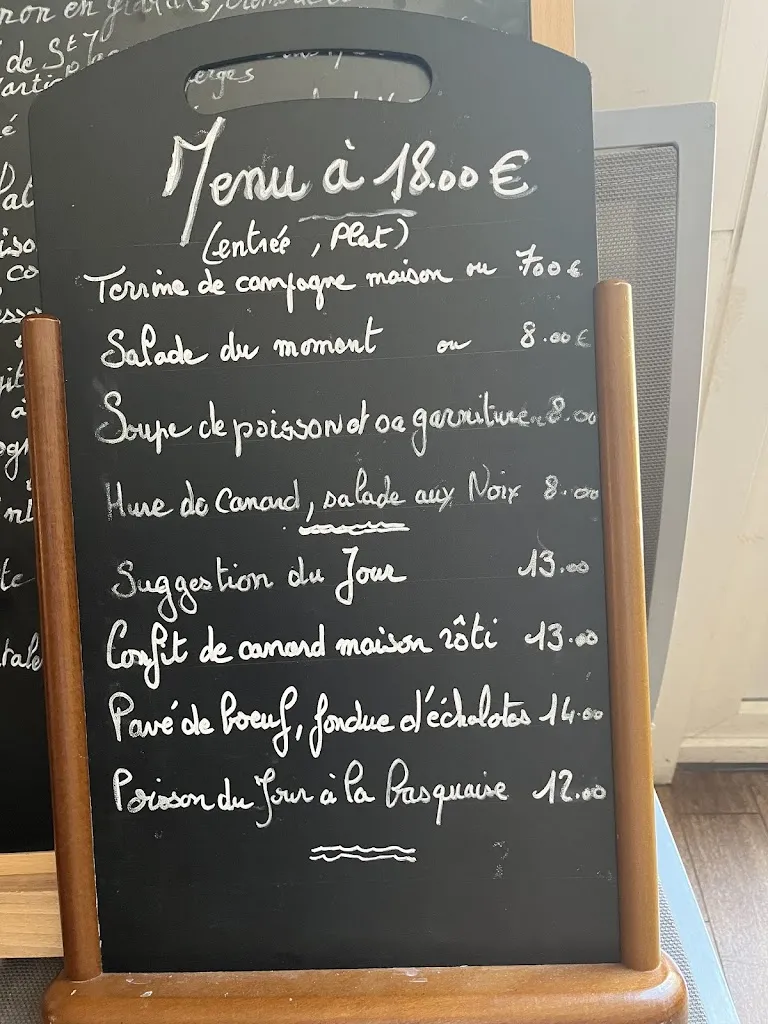 Menu à 18.00 €
(entrée, Plat)
Terrine de campagne maison ou 7.00 €
Salade du moment ou 8.00 €
Soupe de poisson et sa garniture 8.00
Hure de Canard, salade aux Noix 8.00
Suggestion du Jour 13.00
Confit de canard maison rôti 13.00
Pavé de boeuf, fondue d'échalotes 14.00
Poisson du Jour à la basquaise 12.00